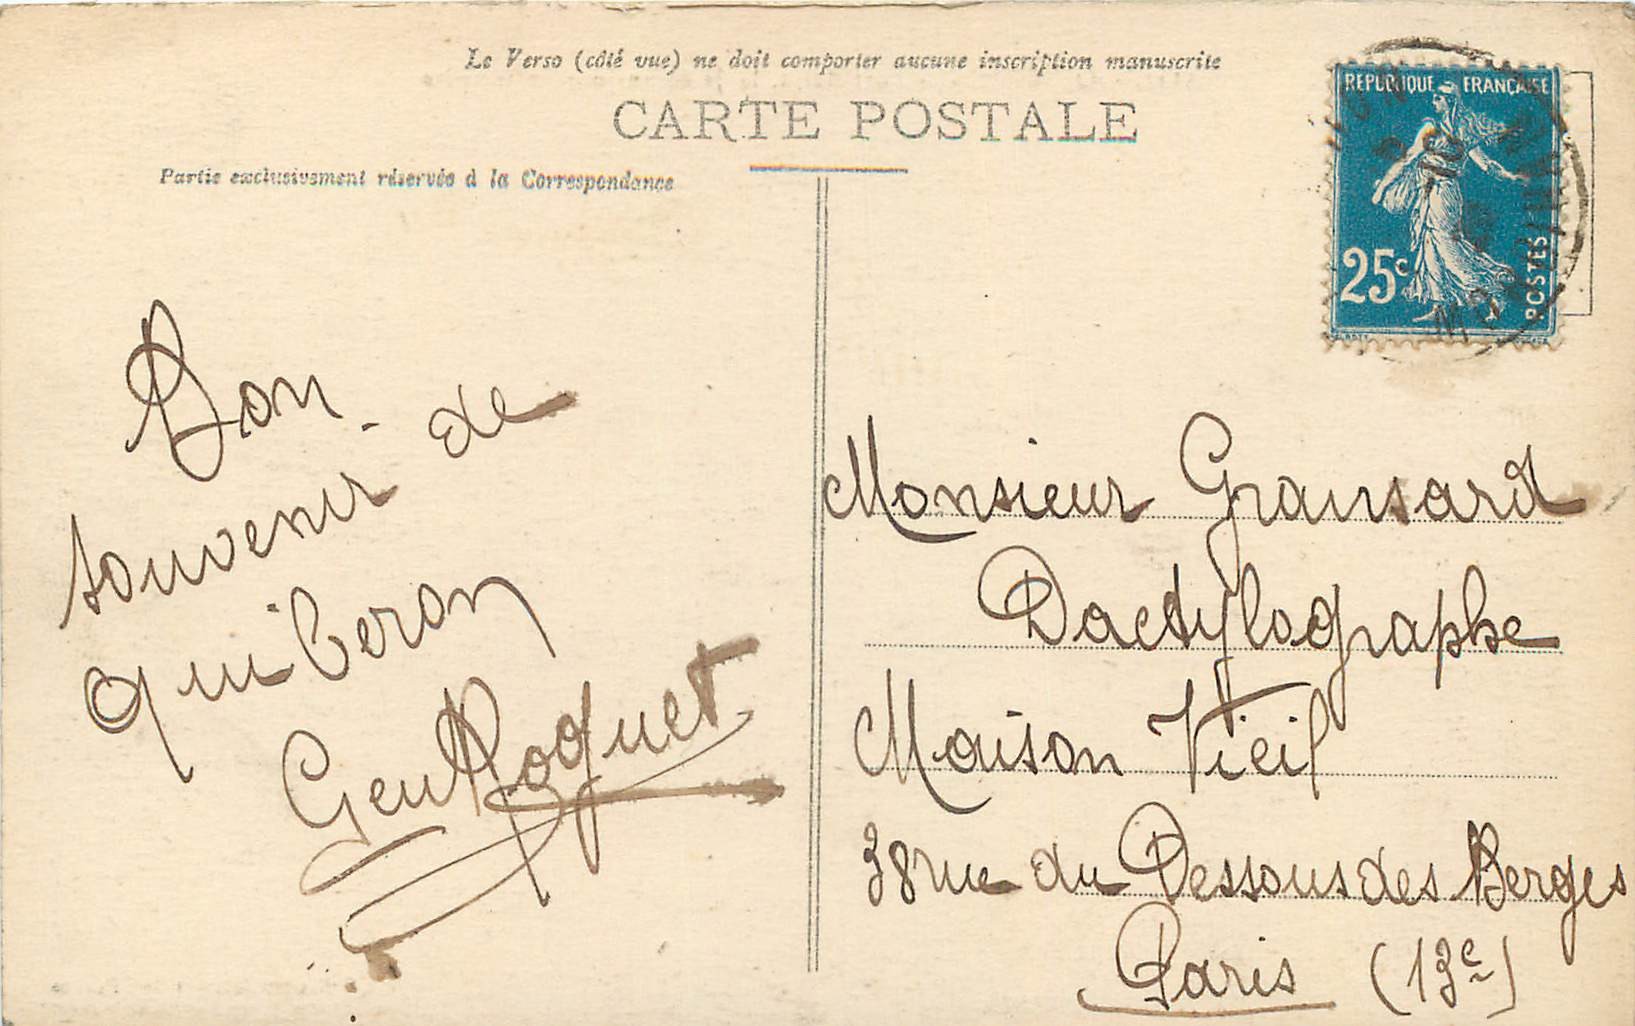 Le Verso (côté vue) ne doit comporter aucune inscription manuscrite
CARTE POSTALE
Partie exclusivement réservée à la Correspondance
REPUBLIQUE FRANÇAISE
25c
POSTES
Bon
souvenir de
quiberon
Roquet
Monsieur Gransard
Dactylographe
Maison Vieil
38 rue du Dessous des Berges
Paris (13e)